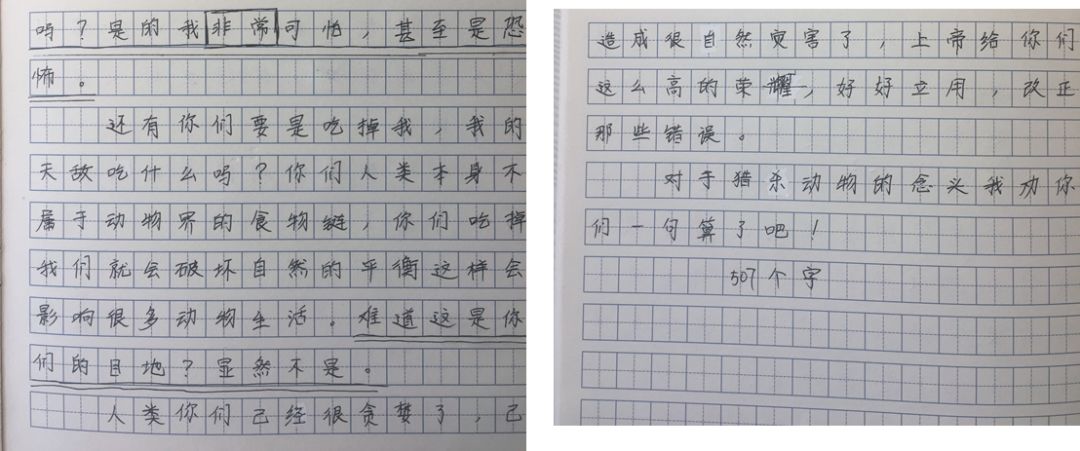 吗？是的我非常可怕，甚至是恐
怖。
还有你们要是吃掉我，我的
天敌吃什么吗？你们人类本身不
属于动物界的食物链，你们吃掉
我们就会破坏自然的平衡这样会
影响很多动物生活。难道这是你
们的目地？显然不是。
人类你们已经很贪婪了，已
造成很自然灾害了，上帝给你们
这么高的荣耀，好好立用，改正
那些错误。
对于猎杀动物的念头我劝你
们一句算了吧！
507个字